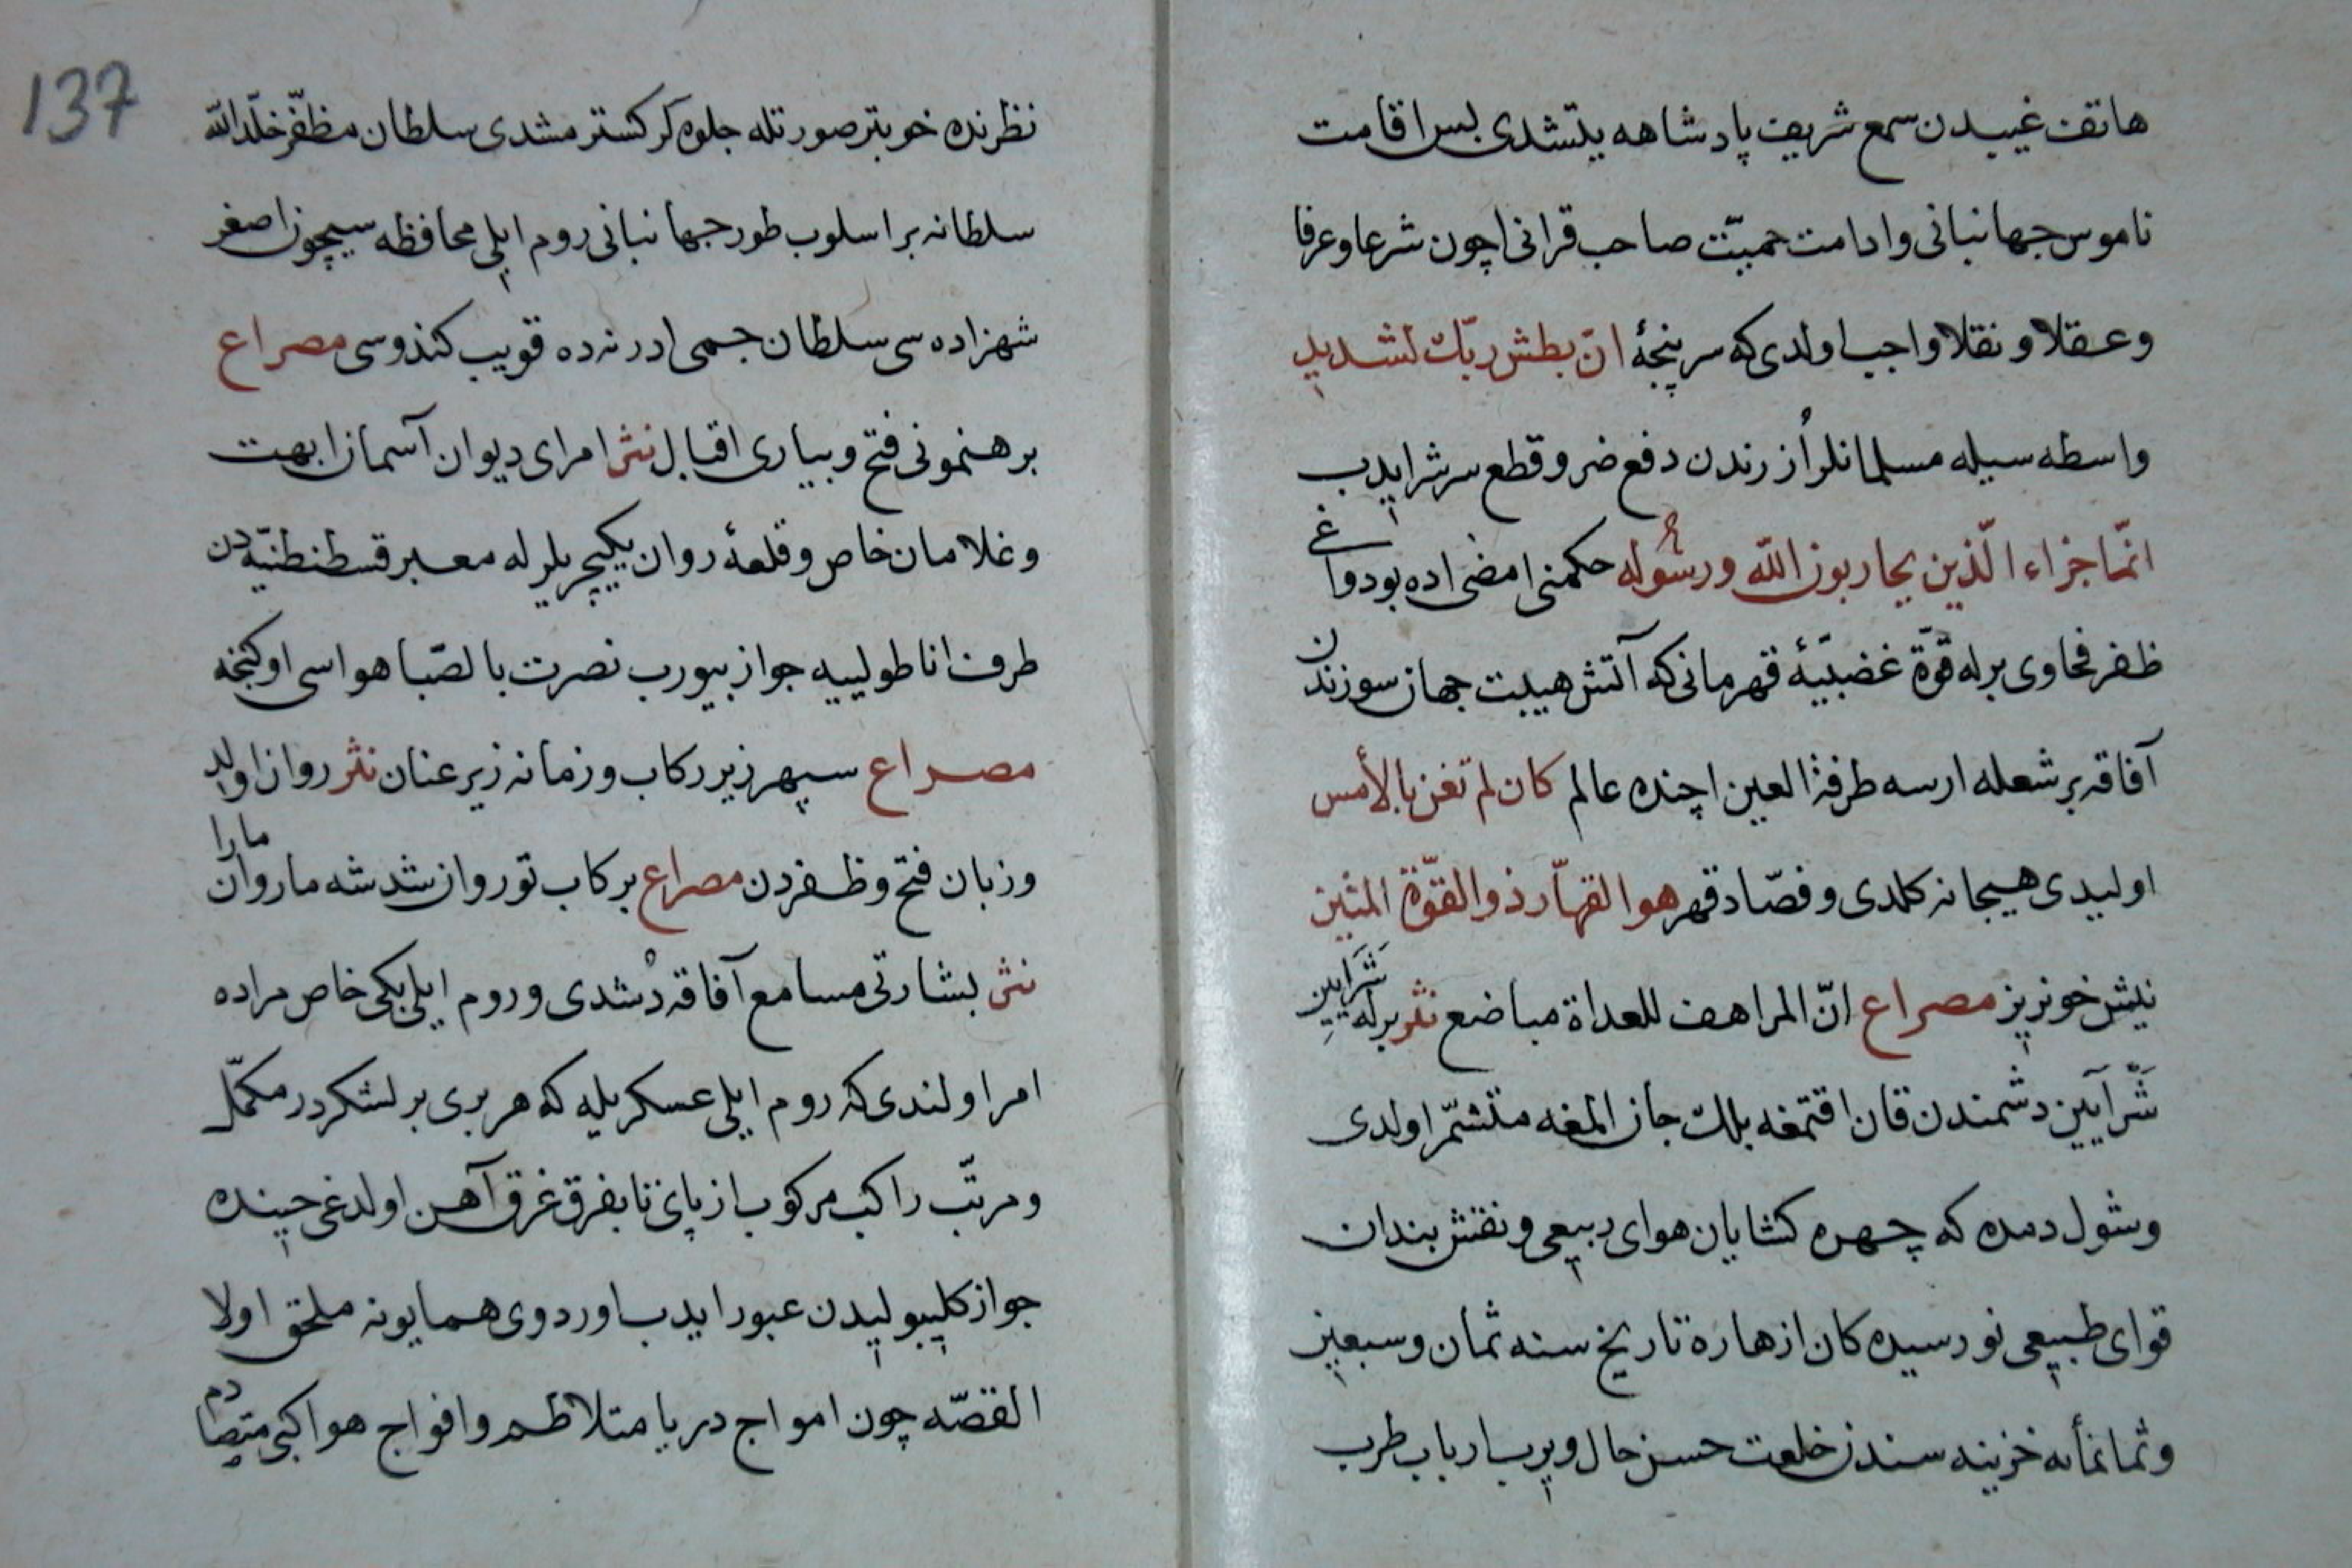 هاتف غیبدن سمع شریف پادشاهه یتشدی بس اقامت
ناموس جهانبانی وادامت حمیّت صاحب قرانی اچون شرعا وعرفا
وعقلا ونقلا واجب اولدی که سرپنجۀ انّ بطش ربّك لشدید
واسطه سیله مسلمانلر اُزرندن دفع ضر وقطع سرشر ایدب
انّما جزاء الّذین یحاربون اللّه ورسُوله حکمنی امضی اده بو دواغی
ظفر فحاوی برله قوّة غضبیّۀ قهرمانی که آتش هیبت جهان سوزندن
آفاقه بر شعله ارسه طرفة العین اچنده عالم کان لم تغن بالأمس
اولیدی هیجانه کلدی وفصّاد قهر هو القهّار ذو القوّة المتین
نیش خونریز مصراع انّ المراهف للعداة مباضع نثر برله شَرَایین
شَرّ آیین دشمندن قان اقتمغه بلك جان المغه متشمّر اولدی
وشول دمده که چهره کشایان هوای ربیعی ونقش بندان
قوای طبیعی نورسیده کان ازهاره تاریخ سنه ثمان وسبعین
وثمانمأیه خزینه سندن خلعت حسن حال ویرب ارباب طرب
137
نظرنده خوبتر صورتله جلوه کر کسترمشدی سلطان مظفّر خلّد اللّه
سلطانه بر اسلوب طور جهانبانی روم ایلی محافظه سیچون اصغر
شهزاده سی سلطان جمی ادرنه ده قویب کندوسی مصراع
برهنمونی فتح وبیاری اقبال نثر امرای دیوان آسمان ابهت
وغلامان خاص وقلعۀ روان یکیچریلر له معبر قسطنطنیّه دن
طرف اناطولییه جواز بیورب نصرت بالصّبا هواسی اوکنجه
مصراع سپهر زیر رکاب وزمانه زیر عنان نثر روان اولد
وزبان فتح وظفردن مصراع برکاب تو روان شد شه ما روان مارا
نثر بشارتی مسامع آفاقه دُشدی وروم ایلی بکی خاص مراده
امر اولندی که روم ایلی عسکریله که هر بری بر لشکردر مکمّل
ومرتّب راکب مرکوب از پای تا بفرق غرق آهن اولدغی حینده
جواز کلیبولیدن عبور ایدب اوردوی همایونه ملحق اولا
القصّه چون امواج دریا متلاطم وافواج هواکبی متصادم